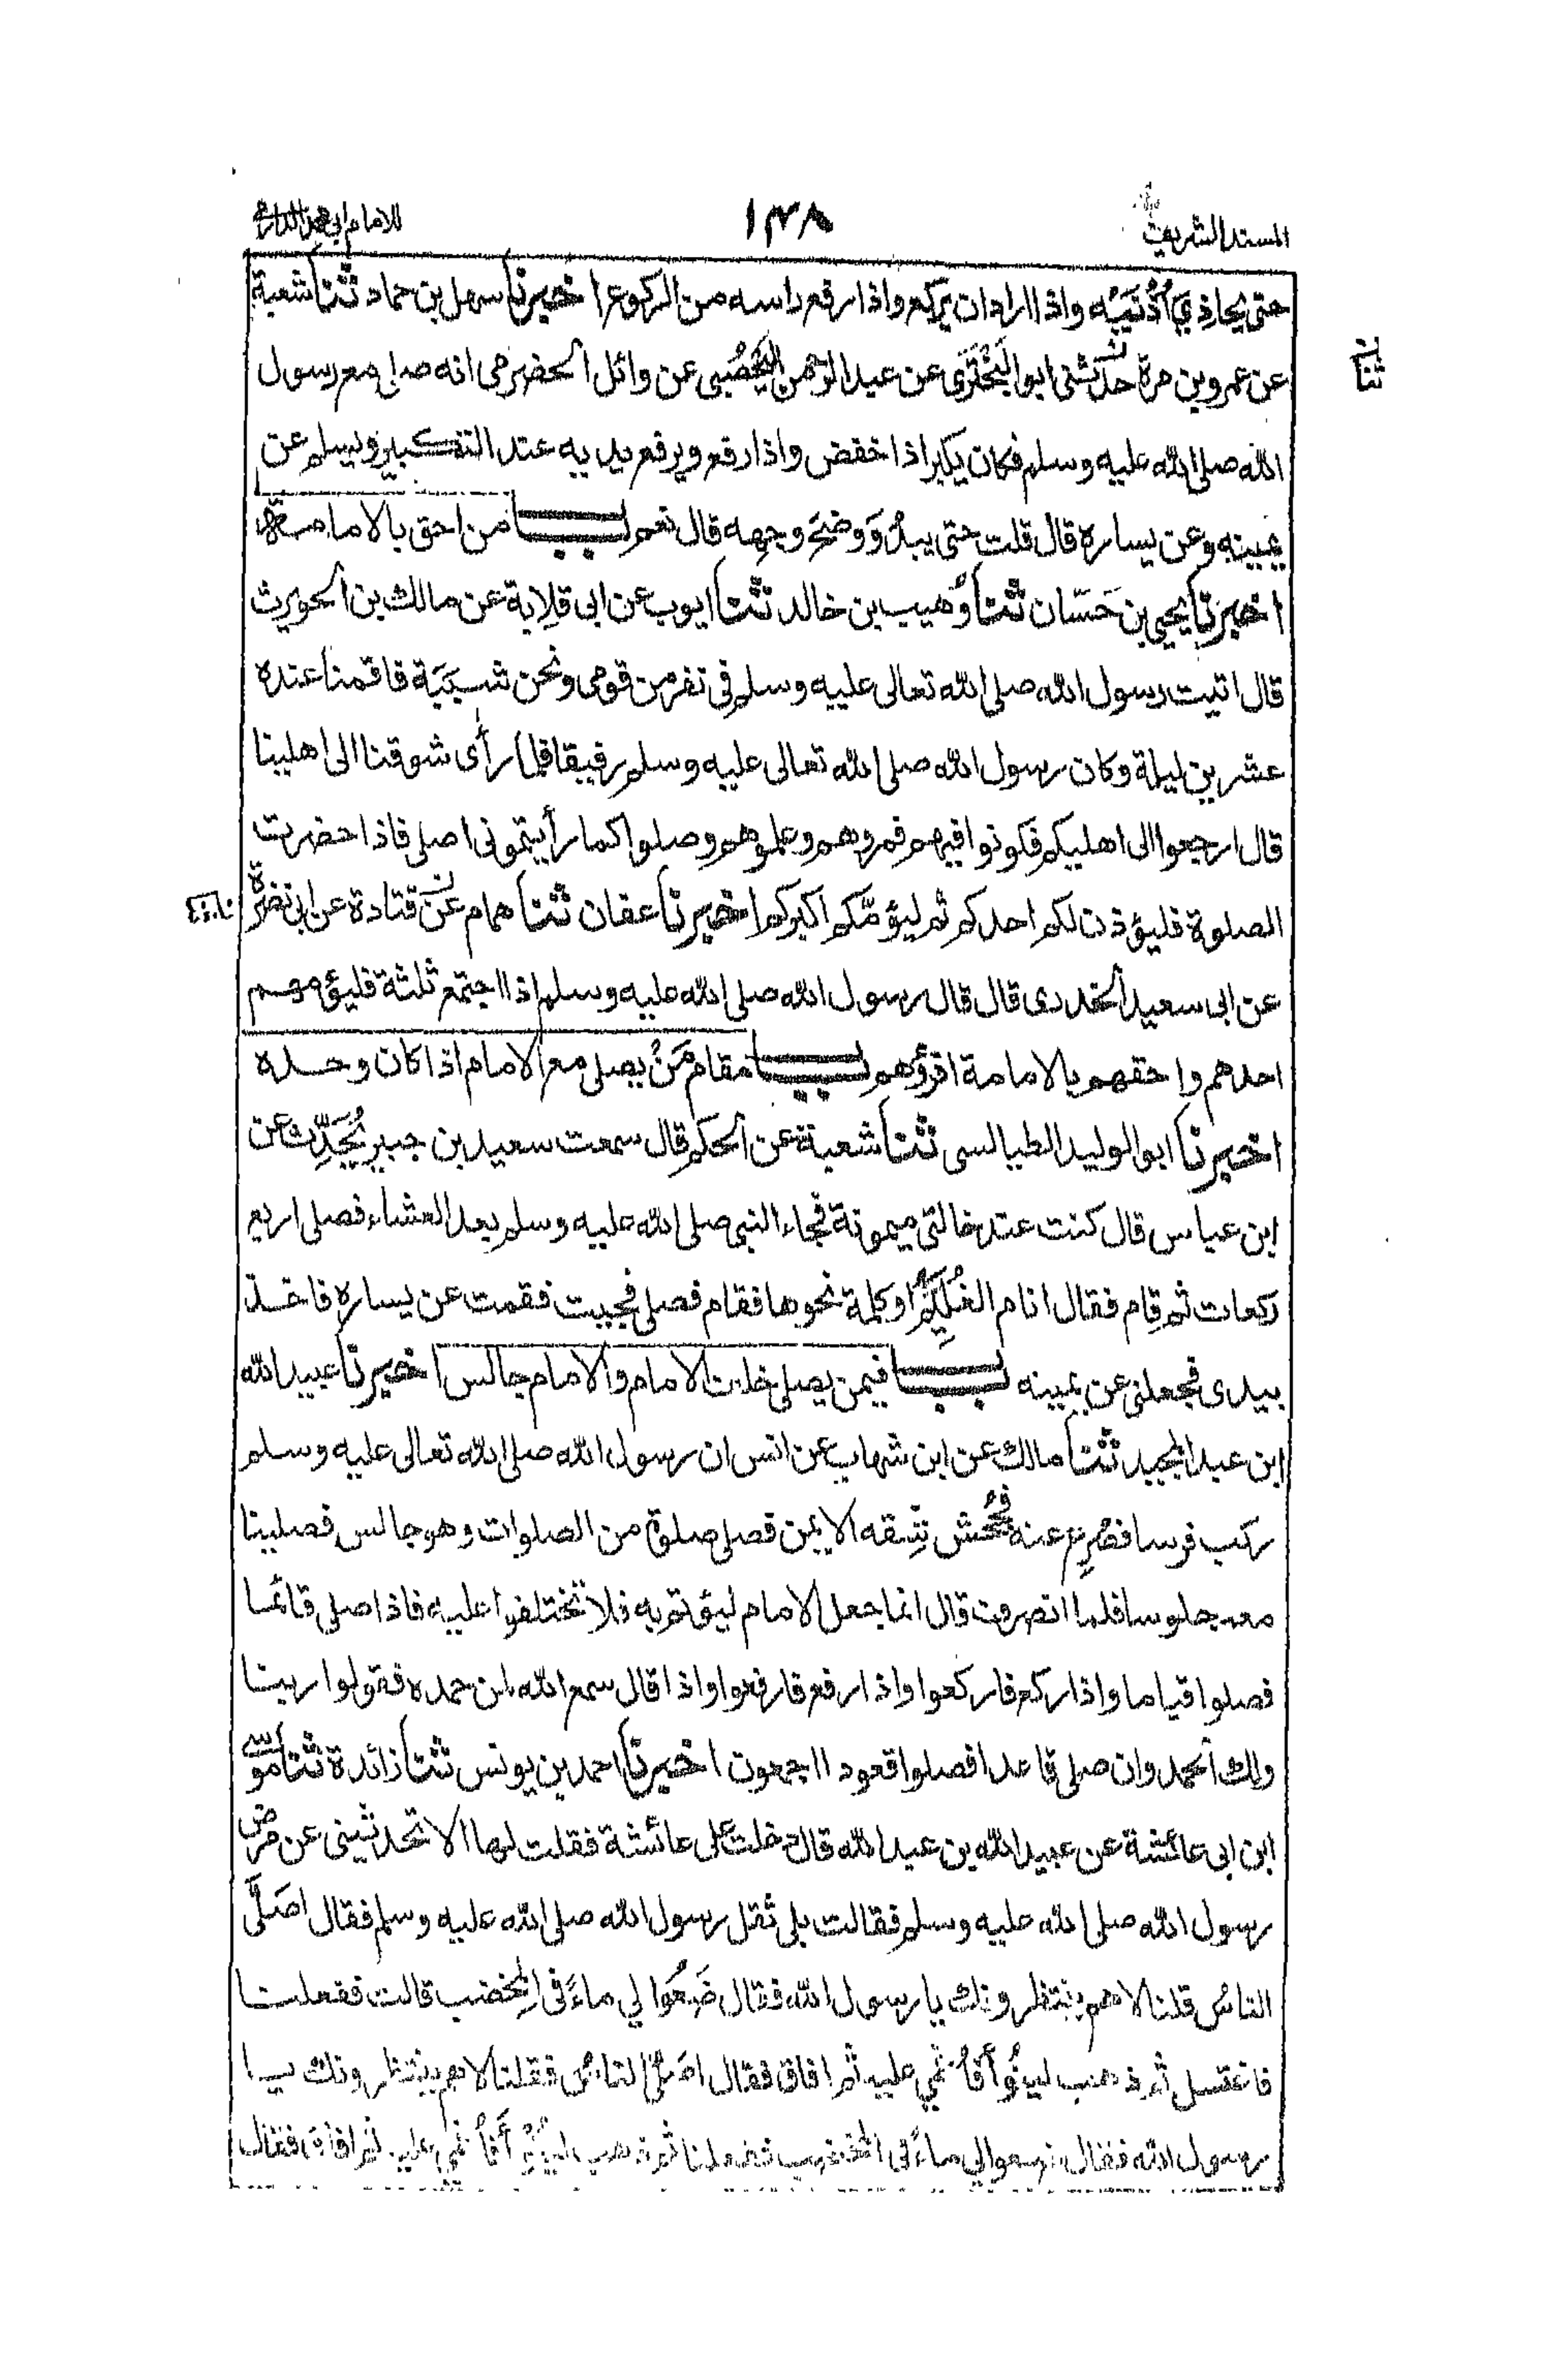 المسند الشريف ١٣٨ للامام ابى محمد الدارمى
حتى يحاذي أُذُنَيْه واذا اراد ان يركع واذا رفع راسه من الركوع اخبرنا سهل بن حماد ثنا شعبة
عن عمرو بن مرة حدثنى ابو البَخْتَرى عن عبد الرحمن اليَحْصُبى عن وائل الحضرمى انه صلى مع رسول
ثنا
الله صلى الله عليه وسلم فكان يكبر اذا خفض واذا رفع ويرفع يديه عند التكبير ويسلم عن
يمينه وعن يساره قال قلت حتى يبدُوَ وَضَحُ وجهه قال نعم باب من احق بالامامة
اخبرنا يحيى بن حَسّان ثنا وُهيب بن خالد ثنا ايوب عن ابى قِلابة عن مالك بن الحويرث
قال اتيت رسول الله صلى الله تعالى عليه وسلم فى نفر من قومى ونحن شَبَبَة فاقمنا عنده
عشرين ليلة وكان رسول الله صلى الله تعالى عليه وسلم رفيقا فلما رأى شوقنا الى اهلينا
قال ارجعوا الى اهليكم فكونوا فيهم فمروهم وعلموهم وصلوا كما رأيتمونى اصلى فاذا حضرت
الصلوة فليؤذن لكم احدكم ثم ليؤمّكم اكبركم اخبرنا عفان ثنا همام عن قتادة عن ابى نضرة
عن ابى سعيد الخدرى قال قال رسول الله صلى الله عليه وسلم اذا اجتمع ثلثة فليؤمهم
احدهم واحقهم بالامامة اقرؤهم باب مقام مَنْ يصلى مع الامام اذا كان وحده
اخبرنا ابو الوليد الطيالسى ثنا شعبة عن الحكم قال سمعت سعيد بن جبير يُحَدِّث عن
ابن عباس قال كنت عند خالتى ميمونة فجاء النبى صلى الله عليه وسلم بعد العشاء فصلى اربع
ركعات ثم قام فقال انام الغُلَيِّمُ او كلمة نحوها فقام فصلى فجيت فقمت عن يساره فاخذ
بيدى فجعلنى عن يمينه باب فيمن يصلى خلف الامام والامام جالس اخبرنا عبيد الله
ابن عبد المجيد ثنا مالك عن ابن شهاب عن انس ان رسول الله صلى الله تعالى عليه وسلم
ركب فرسا فصُرِع عنه فجُحُش شِقه الايمن فصلى صلوة من الصلوات وهو جالس فصلينا
معه جلوسا فلما انصرف قال انما جعل الامام ليؤتم به فلا تختلفوا عليه فاذا صلى قائما
فصلوا قياما واذا ركع فاركعوا واذا رفع فارفعوا واذا قال سمع الله لمن حمده فقولوا ربنا
ولك الحمد وان صلى قاعدا فصلوا قعودا اجمعون اخبرنا احمد بن يونس ثنا زائدة ثنا موسى
ابن ابى عائشة عن عبيد الله بن عبد الله قال دخلت على عائشة فقلت لها الا تحدثينى عن مرض
رسول الله صلى الله عليه وسلم فقالت بلى ثقل رسول الله صلى الله عليه وسلم فقال اصَلَّى
الناسُ قلنا لا هم ينتظرونك يا رسول الله فقال ضَعُوا لي ماءً فى المِخْضَب قالت ففعلنا
فاغتسل ثم ذهب لينُوْأَ فأُغْمِي عليه ثم افاق فقال اصَلَّى الناسُ فقلنا لا هم ينتظرونك يا
رسول الله فقال ضعوا لي ماءً فى المخضب ففعلنا ثم ذهب لينُوْأَ فأُغْمِي عليه ثم افاق فقال